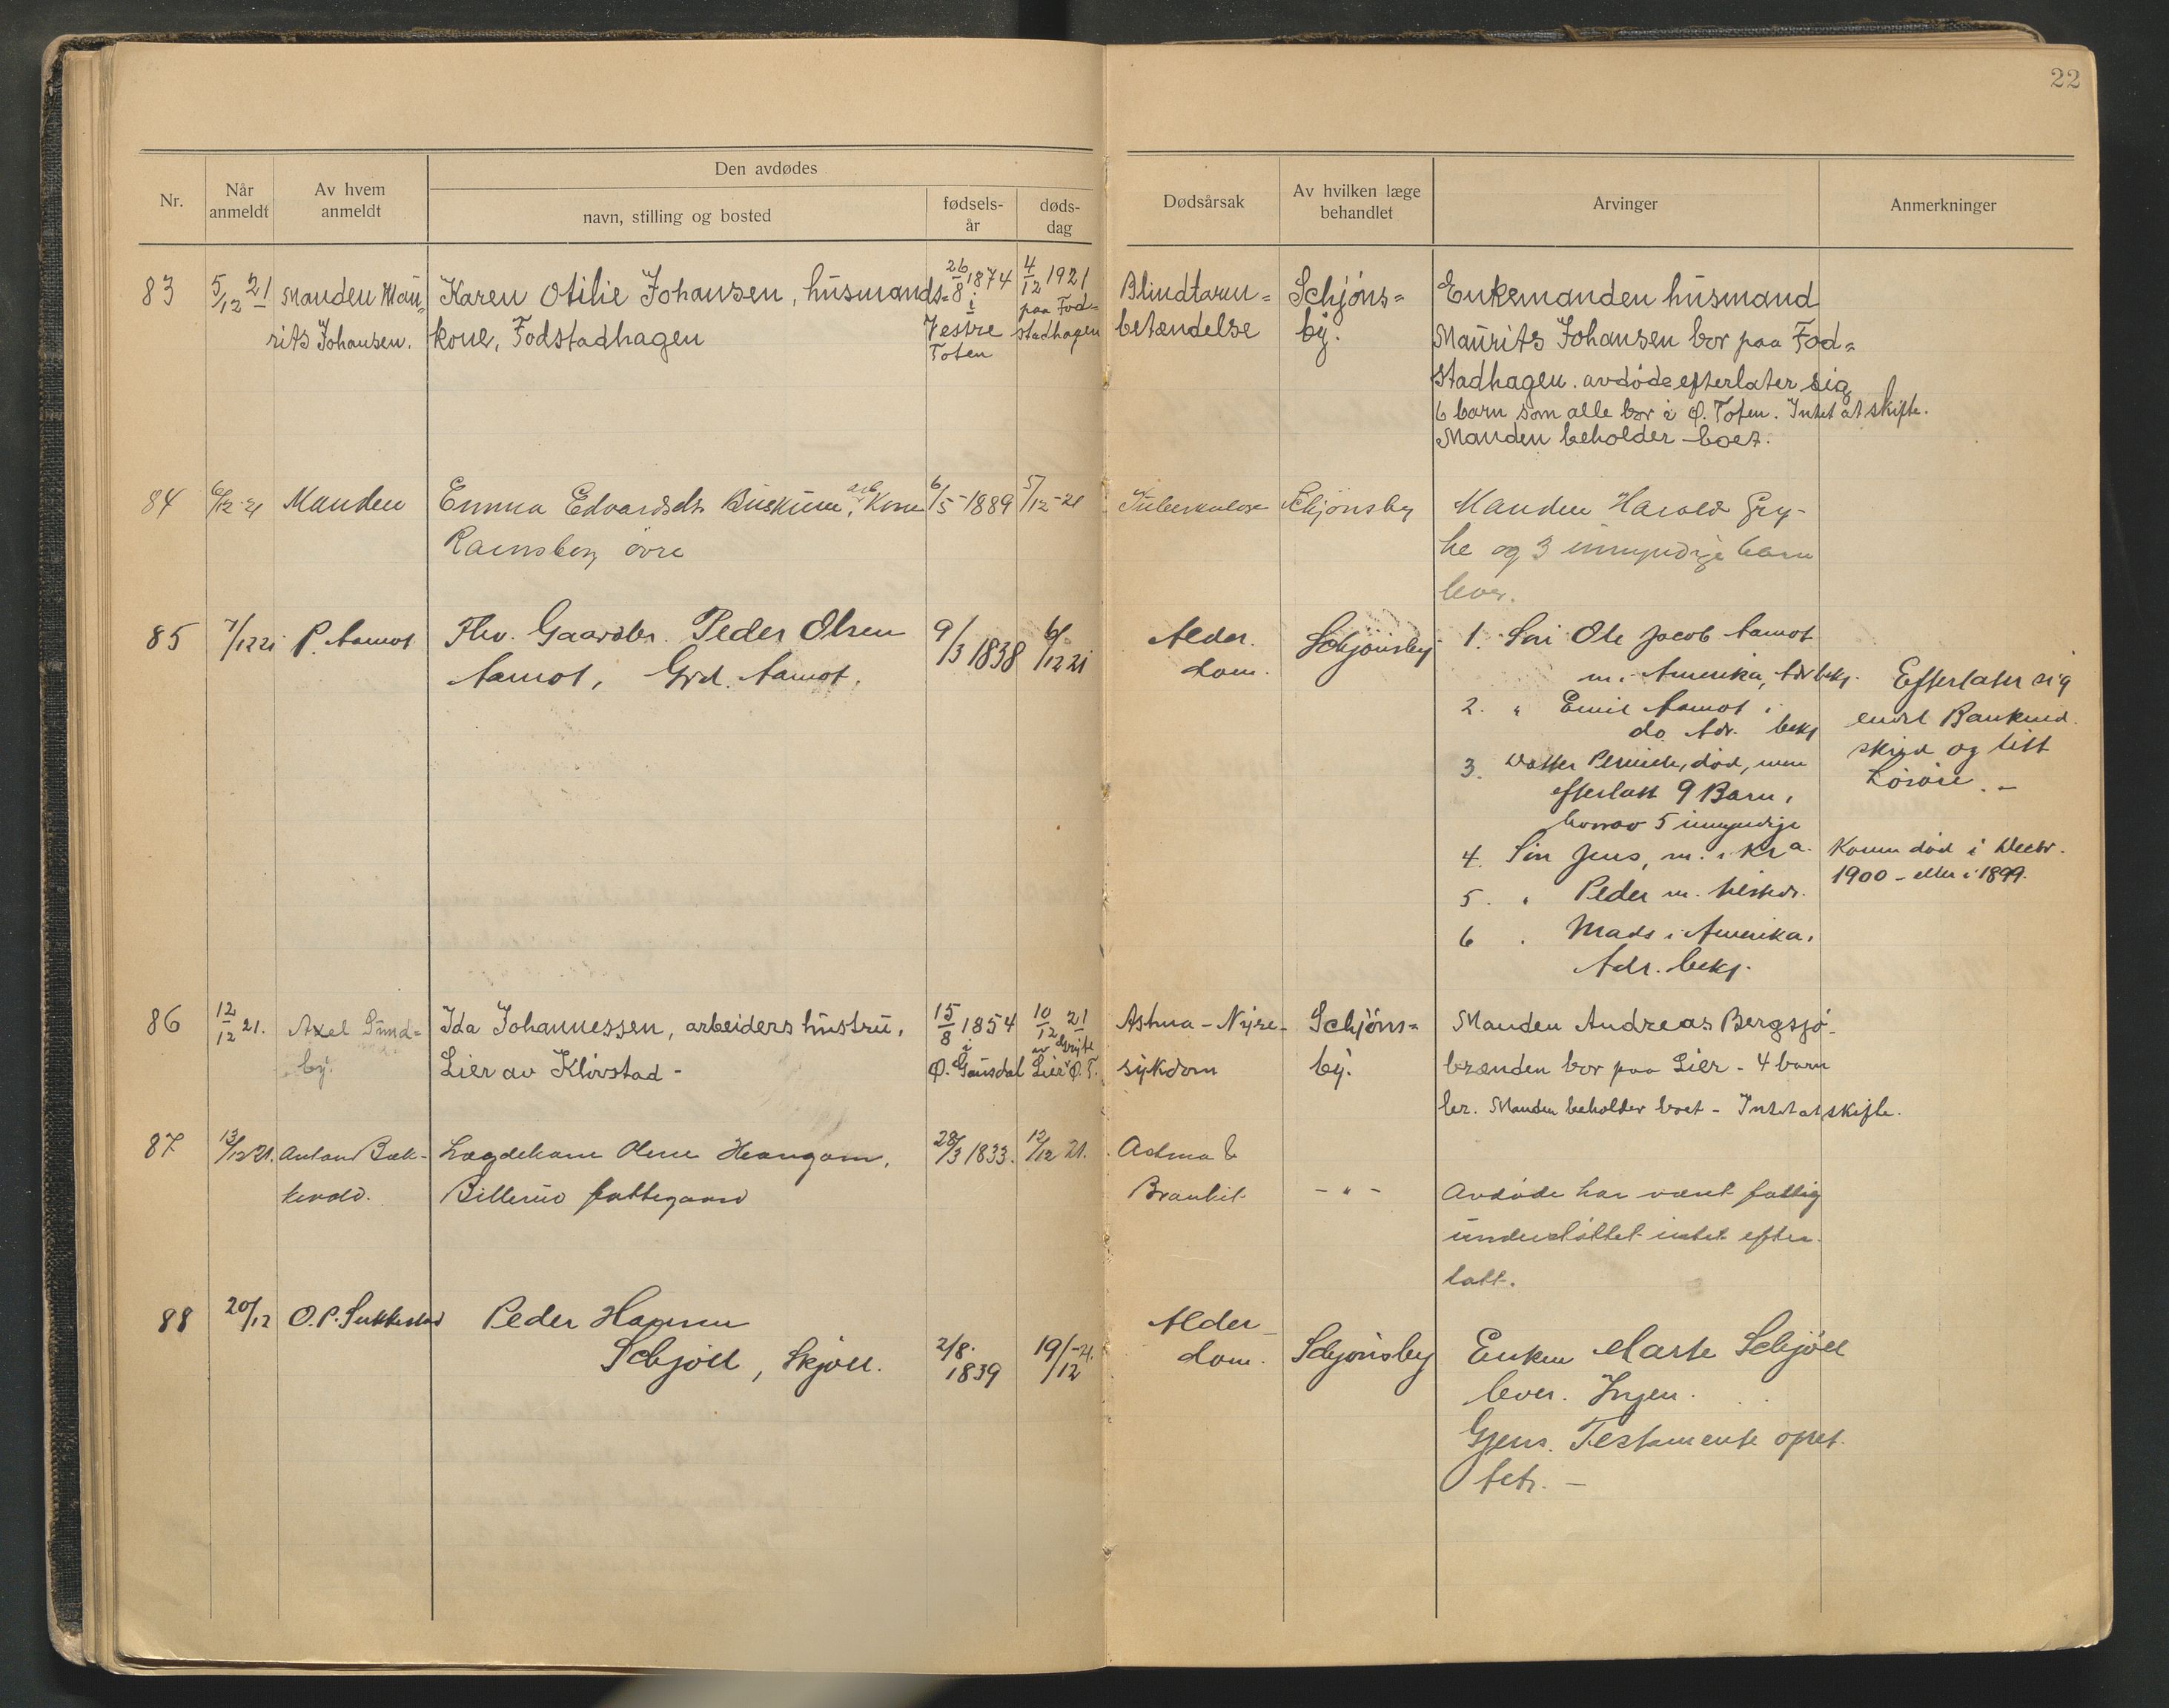 22
Nr.
Når anmeldt
Av hvem anmeldt
Den avdødes
navn, stilling og bosted
fødsels-år
døds-dag
Dødsårsak
Av hvilken læge behandlet
Arvinger
Anmerkninger
83
5/12 21
Manden Mau=
rits Johansen.
Karen Otilie Johansen, husmands=
kone, Fodstadhagen
26/8 1874
i
Vestre
Toten
4/12 1921
paa Fod=
stadhagen
Blindtarm=
betændelse
Schjöns=
by.
Enkemanden husmand
Maurits Johansen bor paa Fod=
stadhagen. avdöde efterlater sig
6 barn som alle bor i Ø. Toten. Intet at skifte.
Manden beholder boet.
84
6/12-21
Manden
Emma Edvardsdr. arb. Kone
Ramsberg övre
6/5-1889
5/12-21
Tuberkulose
Schjönsby
Manden Harald Gry-
te og 3 umyndige barn
lever.
85
7/12 21
P. Aamot
Fhv. Gaardbr. Peder Olsen
Aamot, Grd. Aamot.
9/3 1838
6/12 21
Alder.
dom.
Schjönsby
1. Sön Ole Jacob Aamot
m. i Amerika, Adr bekj.
2. " Emil Aamot i
do. Adr. bekj
3. Datter Pernille, död, men
efterlatt 9 Barn,
hvorav 5 umyndige
4. Sön Jens, m. i Kra.
5. " Peder m.
6 " Mads i Amerika,
Adr. bekj.
Efterlater sig
endel Bankind.
skud og litt
Lösöre. -
Konen död i Decbr.
1900 - eller i 1899.
86
12/12 21.
Axel Sund=
by.
Ida Johannessen, arbeiders hustru,
Lier av Klövstad -
15/8 1854
i
Ø. Gausdal
10/12 21
Lier Ø. T.
Astma - Nyre-
sykdom
Schjöns=
by.
Manden Andreas Bergsjö-
brænden bor paa Lier - 4 barn
lev. Manden beholder boet - Intet at skifte.
87
13/12 21.
Anton Bæk-
kevold.
Lægdekone Olene Haugom,
Billerud fattegaard
28/3 1833.
12/12 21.
Astma &
Bronkit
- " -
Avdöde har været fattig
understöttet intet efter-
latt.
88
20/12
O. P. Sukkestad
Peder Hansen
Schjöll, Skjöll.
2/8.
1839
19/12-21.
Alder-
dom.
Schjönsby
Enken Marte Schjöll
lever. Ingen
Gjens. Testamente opret-
tet. -